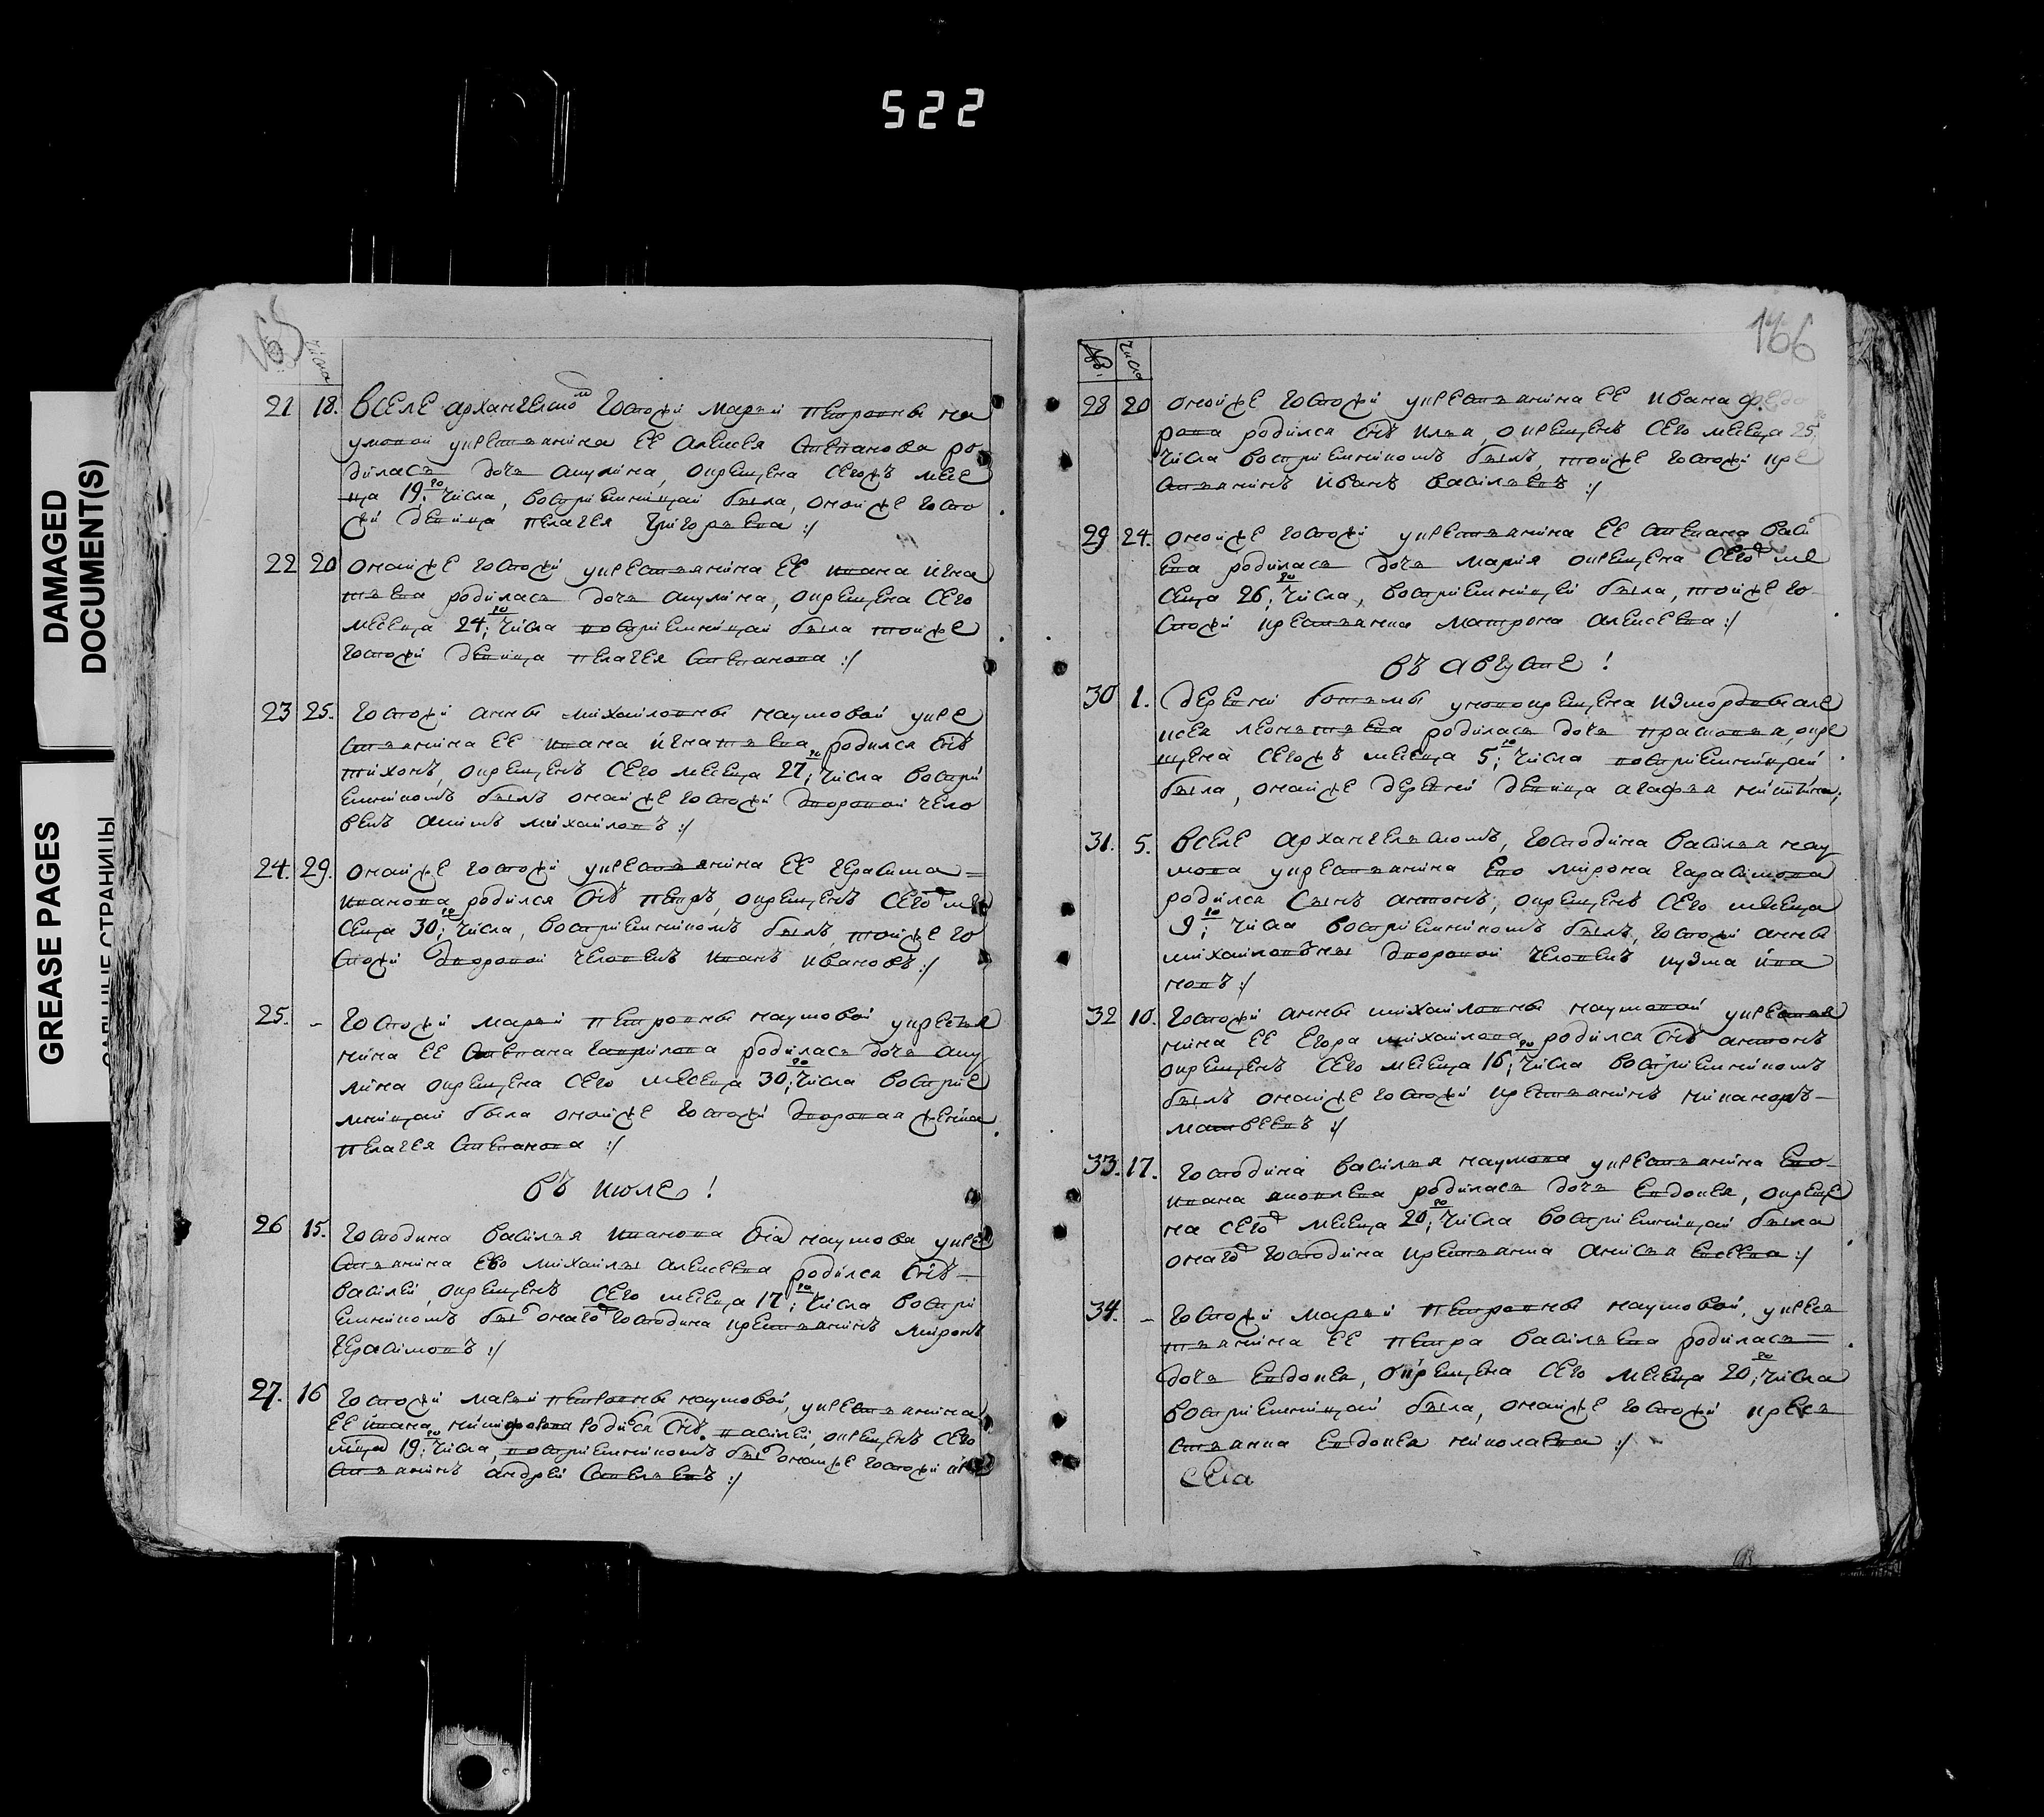 522
DAMAGED
DOCUMENT(S)
GREASE PAGES
числа
21 18. вселе архангелском Госпожи марьи петровны на
умовой укрестьянина ЕЕ алексея Степанова ро
дилась дочь акулина, окрещена сегожъ месе
ца 19: го числа, восприемницай была, оной же госпо
жи девица пелагея григорьева :/
22 20 онай же госпожи укрестьянина ЕЕ ивана игна
тьева родилась дочь акулина, окрещена сего
месеца 24: го числа восприемницай была той же
госпожи девица пелагея Степанова :/
23 25. госпожи анны михайловны наумовой укре
стьянина ЕЕ ивана игнатьева родился снъ
тихонъ, окрещенъ сего месеца 27: го числа воспри
емникомъ былъ онай же госпожи дворовой чело
векъ акимъ михайловъ :/
24. 29. онай же госпожи укрестьянина ЕЕ герасима =
иванова родился снъ петръ, окрещенъ сего ме
сеца 30: го числа, восприемникомъ былъ, той же го
спожи дворовой человекъ иванъ ивановъ :/
25. - госпожи марьи петровны наумовой укрестья
нина ЕЕ Степана гаврилова родилась дочь аку
лина окрещена сего месеца 30: го числа восприе
мницай была онай же госпожи дворовая женка
пелагея Степанова :/
въ июле !
26 15. господина василья иванова сна наумова укре
стьянина Ево михайлы алексеева родился снъ —
василей, окрещенъ сего месеца 17: го числа воспри
емникомъ был онаго господина крестьянинъ миронъ
герасимовъ :/
27. 16 госпожи марьи петровны наумовой, укрестьянина
ЕЕ ивана никифорова родился снъ василей, окрещенъ сего
мца 19: го числа, восприемникомъ был онай же госпожи кре
стьянинъ андрей Савельевъ :/
166
числа
28 20 оной же госпожи укрестьянина ЕЕ ивана федо
рова родился снъ илья, окрещенъ сего месеца 25
числа восприемникомъ былъ, той же госпожи кре
стьянинъ иванъ васильевъ :/
29 24. оной же госпожи укрестьянина ЕЕ степана васи
ева родилась дочь мария окрещена сего ме
сеца 26: го числа, восприемницей была, той же го
спожи крестьянка матрона алексеева :/
въ августе !
30 1. деревни ботьмы уновокрещена измордвы але
ксея леонтьева родилась дочь прасковья, окре
щена сегожъ месеца 5: го числа восприемницай
была, онай же деревни девица агафья никитина;
31. 5. вселе архангельскомъ, господина василья нау
мова укрестьянина Ево мирона гарасимова
родился сынъ антонъ, окрещенъ сего месеца
9: го числа восприемникомъ былъ, госпожи анны
михайловъны дворовой человекъ кузма ива
новъ :/
32 10. госпожи анны михайловны наумовой укрестья
нина ЕЕ Егора михайлова родился снъ антонъ
окрещенъ сего месеца 16: го числа восприемникомъ
былъ онай же госпожи крестьянинъ никаноръ —
матвеевъ :/
33. 17. господина василья наумова укрестьянина Ево
ивана яковлева родилась дочь Евдокея, окреще
на сего месеца 20: го числа восприемницай была
онаго господина крестьянка анисья Евсеева :/
34. - госпожи марьи петровны наумовой, укрес
тьянина ЕЕ петра васильева родилась =
дочь Евдокея, окрещена сего месеца 20: го числа
восприемницай была, онай же госпожи крес
стьянка Евдокея николаева :/
села